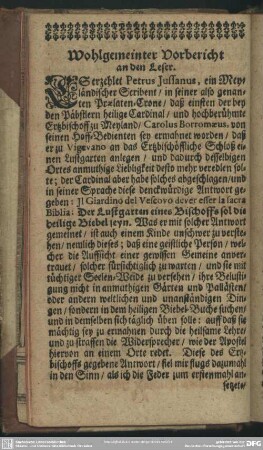 Wohlgemeinter Vorbericht
an den Leser.
ES erzehlet Petrus Jussanus, ein Mey-
ländischer Scribent / in seiner also genan-
ten Prælaten-Crone / daß einsten der bey
den Päbstlern heilige Cardinal / und hochberühmte
Ertzbischoff zu Meyland / Carolus Borromæus, von
seinen Hoff-Bedienten sey ermahnet worden / daß
er zu Vigevano an das Ertzbischöffliche Schloß ei-
nen Lustgarten anlegen / und dadurch desselbigen
Ortes anmuthige Liebligkeit desto mehr veredlen sol-
te; der Cardinal aber habe solches abgeschlagen / und
in seiner Sprache diese denckwürdige Antwort ge-
geben: Jl Giardino del Vescovo dever esser la sacra
Biblia: Der Lustgarten eines Bischoffs sol die
heilige Biebel seyn. Was er mit solcher Antwort
gemeinet / ist auch einem Kinde unschwer zu verste-
hen / nemlich dieses; daß eine geistliche Person / wel-
cher die Auffsicht einer gewissen Gemeine anver-
trauet / solcher fürsichtiglich zu warten / und sie mit
tüchtiger Seelen-Weide zu versehen / ihre Belusti-
gung nicht in anmuthigen Gärten und Pallästen /
oder andern weltlichen und unanständigen Din-
gen / sondern in dem heiligen Biebel-Buche suchen /
und in demselben sich täglich üben solle: auff daß sie
mächtig sey zu ermahnen durch die heilsame Lehre /
und zu straffen die Widersprecher / wie der Apostel
hiervon an einem Orte redet. Diese des Ertz-
bischoffs gegebene Antwort / fiel mir flugs dazumahl
in den Sinn / als ich die Feder zum erstenmahl an-
setzte /